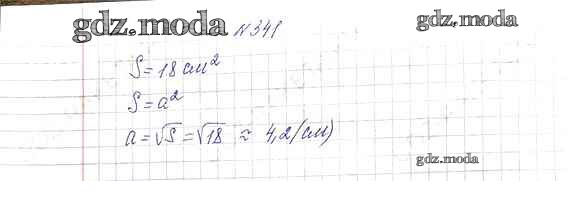 gdz.moda №341 gdz.moda
S=18 см²
S=a²
a=√S=√18 ≈ 4,2(см)
gdz.moda